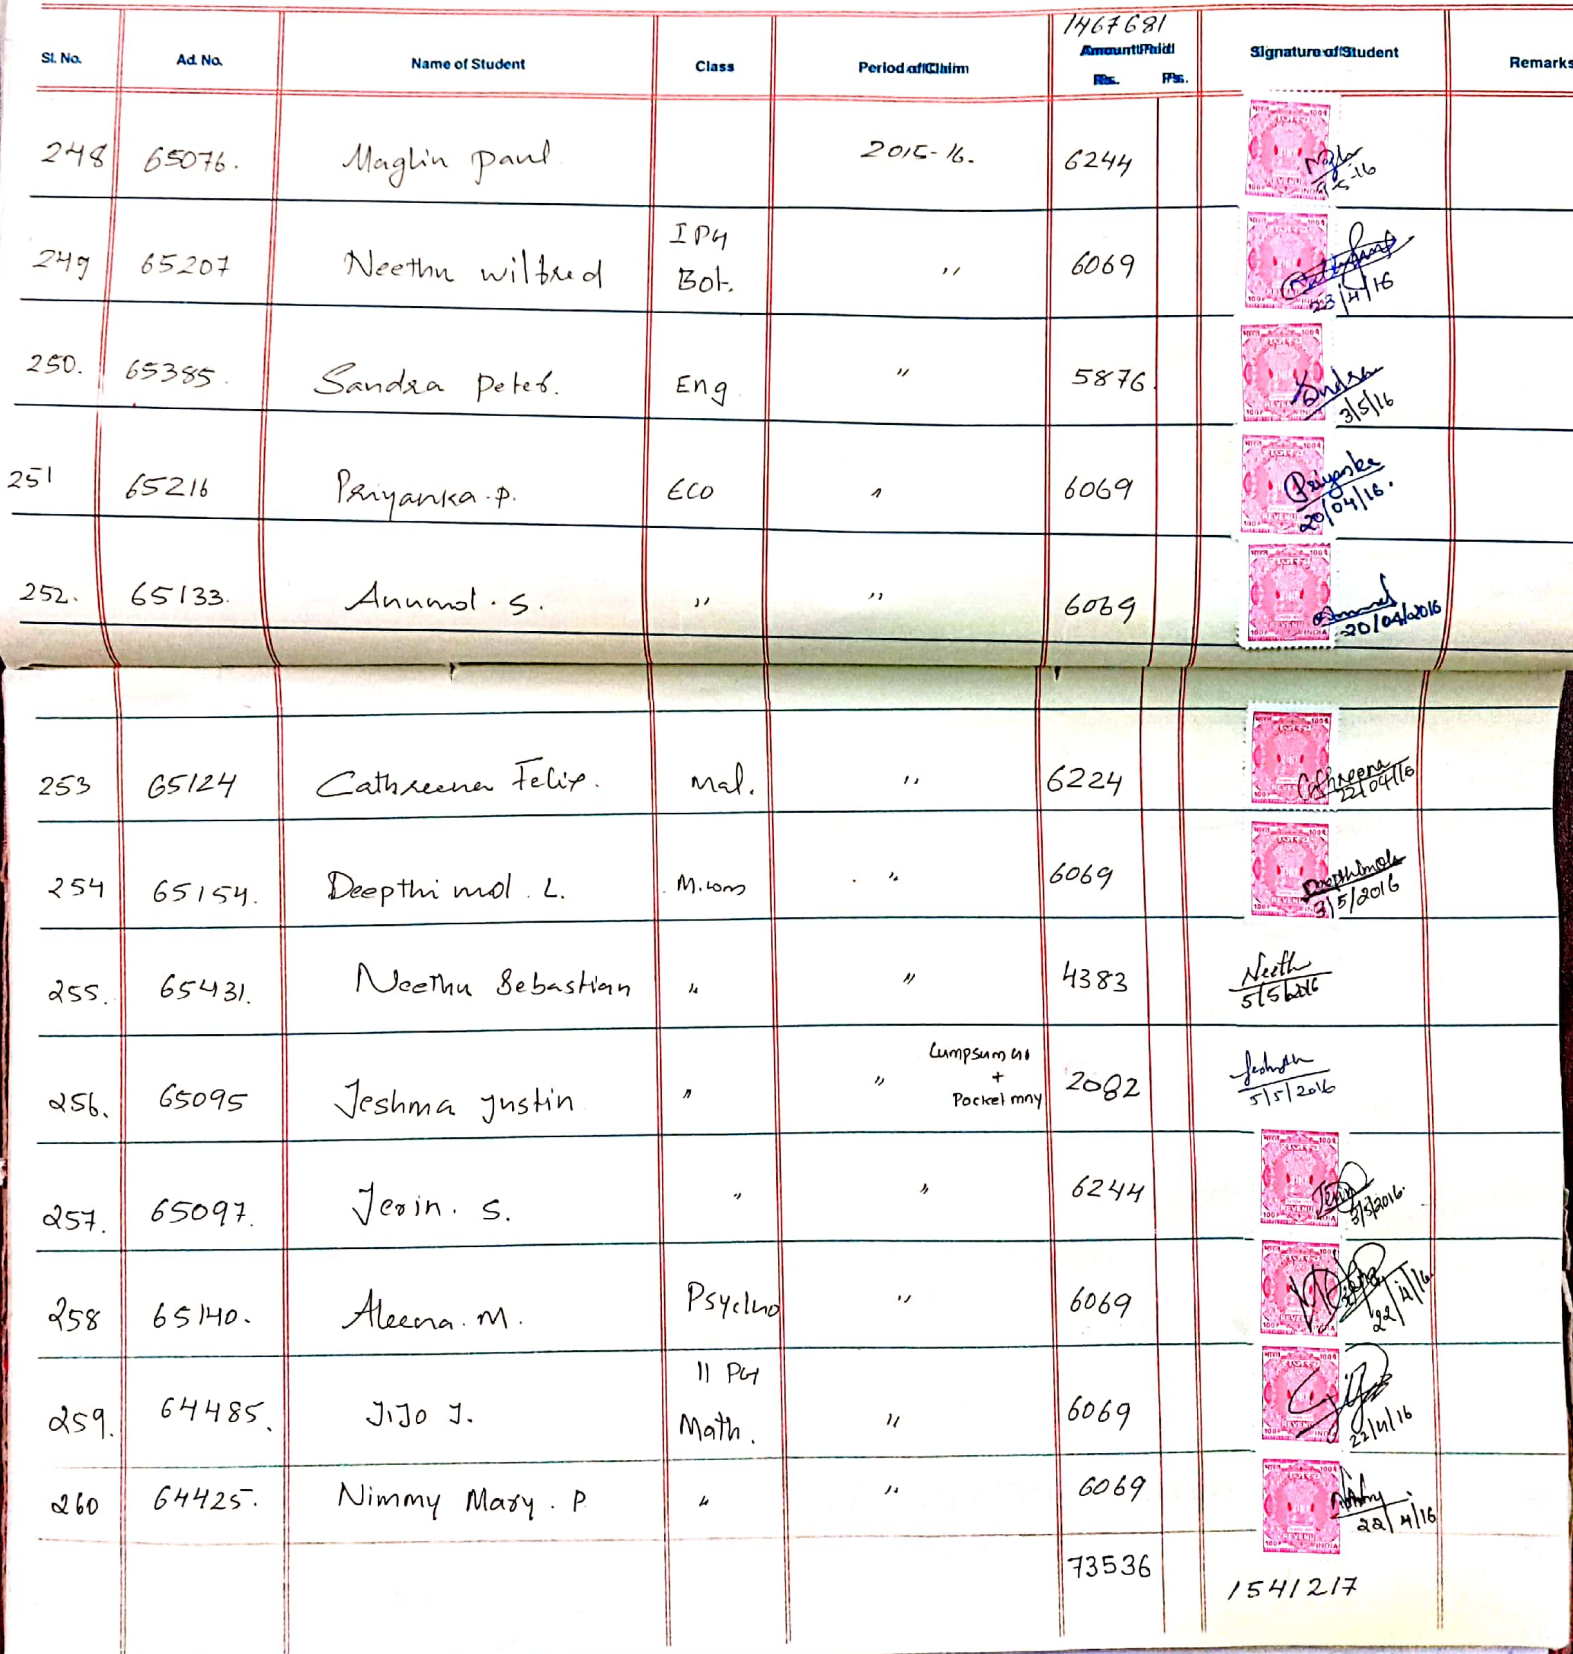 1467681
Sl. No. Ad. No. Name of Student Class Period of Claim Amount Paid Signature of Student Remarks
Rs. Ps.
248 65076. Maglin Paul 2015-16. 6244
249 65207 Neethu Wilfred I PG Bot. " 6069 23/4/16
250. 65385. Sandra Peter. Eng " 5876 Sandra 3/5/16
251 65216 Priyanka.P. Eco " 6069 Priyanka 20/04/16.
252. 65133. Anumol.S. " " 6069 20/04/2016
253 65124 Cathreena Felix. Mal. " 6224 Cathreena 22/04/16
254 65154. Deepthi mol. L. M.com " 6069 Deepthimol 3/5/2016
255. 65431. Neethu Sebastian " " 4383 Neeth 5/5/2016
256. 65095 Jeshma Justin " " Lumpsum + Pocket mny 2082 5/5/2016
257. 65097. Jerin. S. " " 6244 Jerin 3/5/2016.
258 65140. Aleena. M. Psycho " 6069 22/4/16.
259. 64485. JIJO J. II PG Math. " 6069 22/4/16
260 64425. Nimmy Mary. P " " 6069 22/4/16
73536 1541217